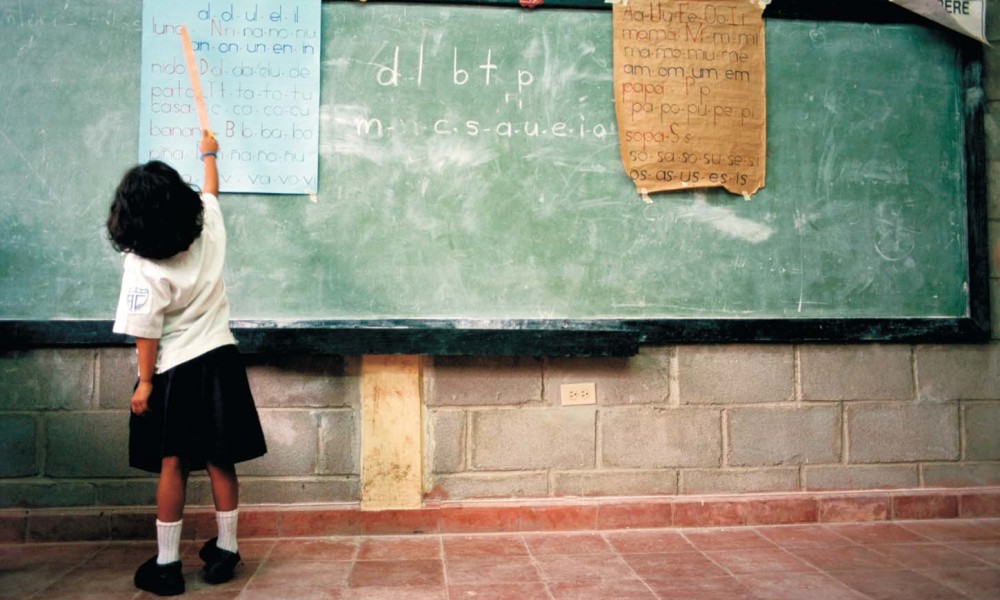 d · d · ul · el · il
luna · N n · na · no · nu
an · on · un · en · in
nido · D d · da · du · de
pato · T t · ta · to · tu
casa · c · ca · co · cu
banano · B b · ba · bo
piña · ñ · ña · ño · ñu
v · va · vo · v
d l b t p
ñ
m · n · c · s · a · u · e · i o
Aa · Uu · Ee · Oo · Ii
mamá · M · m · mi
ma · mo · mu · me
am · om · um · em
papa · P p
pa · po · pu · pe · pi
sopa · S s
so · sa · so · su · se · si
os · as · us · es · is
ERE